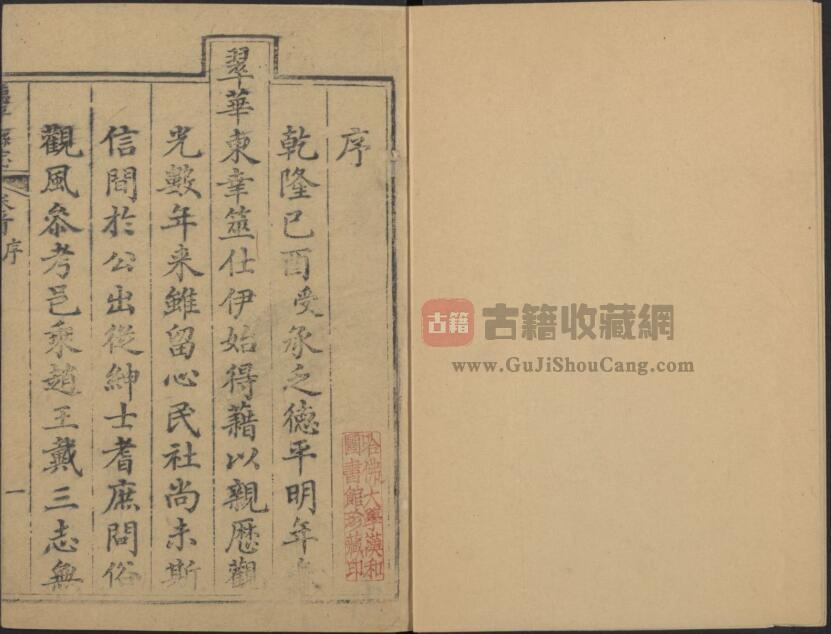 序
乾隆己酉受承乏德平明年春
翠華東幸筮仕伊始得藉以親歷觀
光數年来雖留心民社尚未斯
信間於公出從紳士耆庶問俗
觀風叅考邑乘趙王戴三志無
序
一
哈佛大學漢和
圖書館珍藏印
古籍
古籍收藏網
www.GuJiShouCang.com